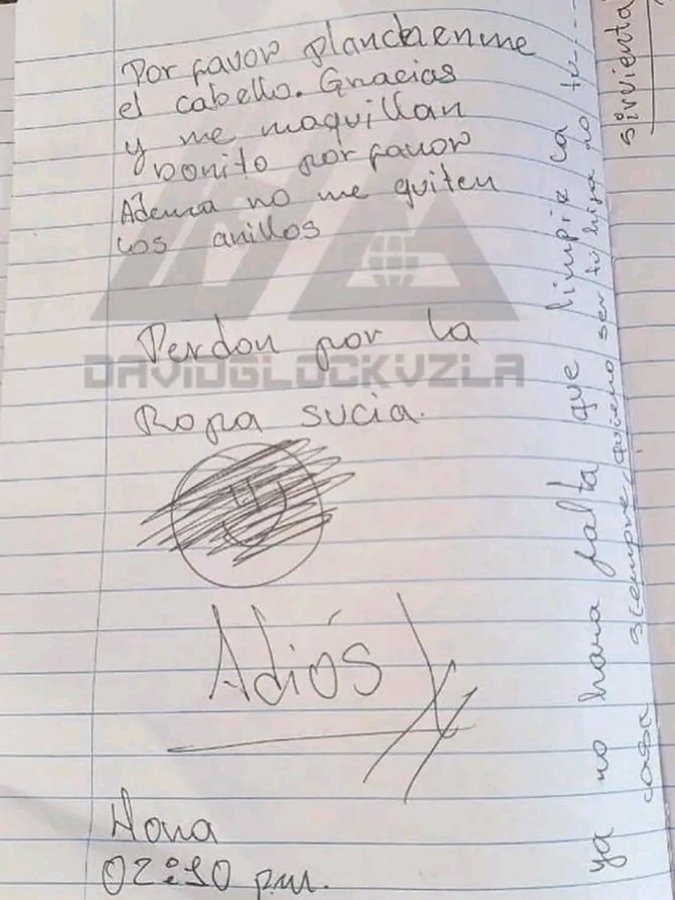 Por favor planchenme
el cabello. Gracias
y me maquillan
bonito por favor
Ademá no me quiten
los anillos
DAVIDGLOCKVZLA
Perdon por la
Ropa sucia.
Adiós
Hora
02:10 pm.
ya no hara falta que limpie la tu
casa siempre, quieno ser tu hija no tu
sirvienta